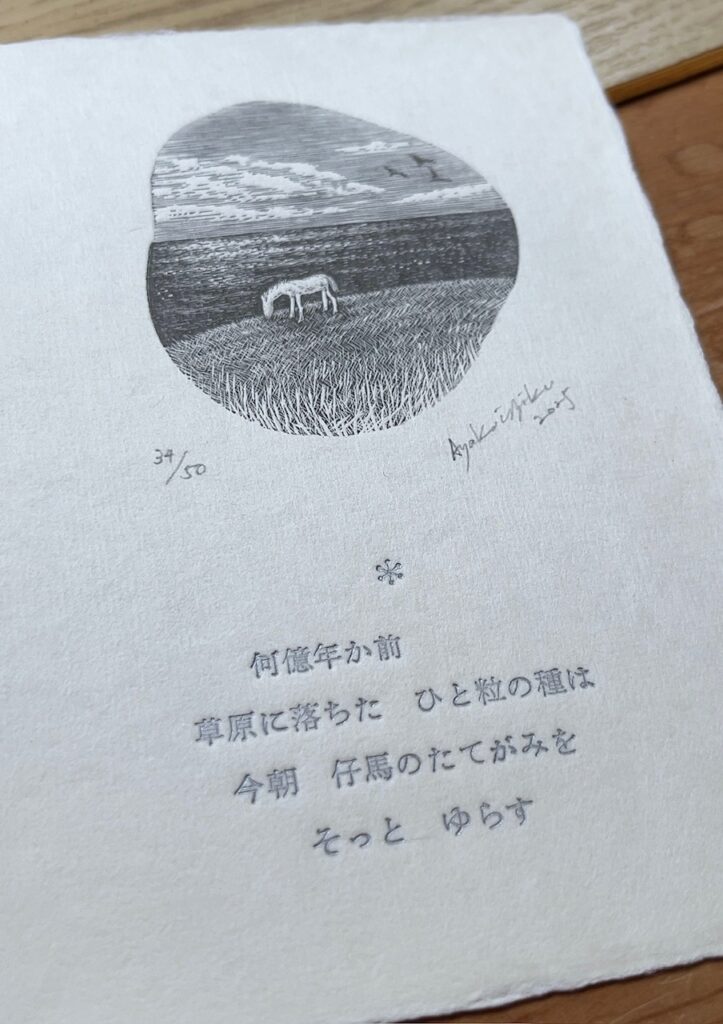 34/50
2025
何億年か前
草原に落ちた　ひと粒の種は
今朝　仔馬のたてがみを
そっと　ゆらす